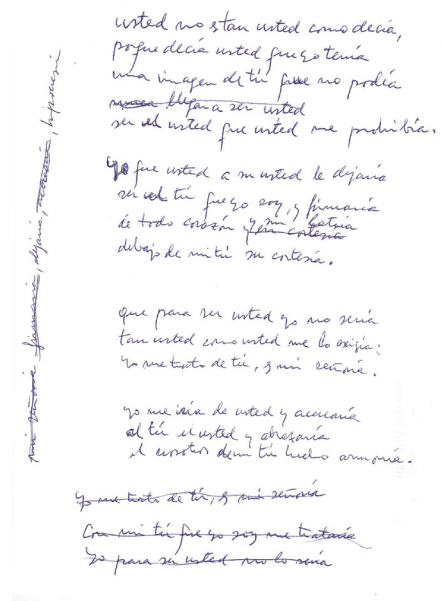 usted no es tan usted como decía,
porque decía usted que yo tenía
una imagen de tú que no podía
nunca llegar a ser usted
ser el usted que usted me prohibía.
Yo que usted a su usted le dejaría
ser el tú que yo soy, y firmaría
de todo corazón y sin
y sin cortesía
debajo de mi tú su cortesía.
que para ser usted yo no sería
tan usted como usted me lo exigía:
yo me trato de tú, y sin señoría.
yo me iría de usted y
al tú el usted y abrazaría
el nosotros de un tú hecho armonía.
yo me trato de tú, y sin señoría
Con mi tú que yo soy me trataría
Yo para ser usted no lo sería
sin señoría firmaría, dejaría, hipocresía